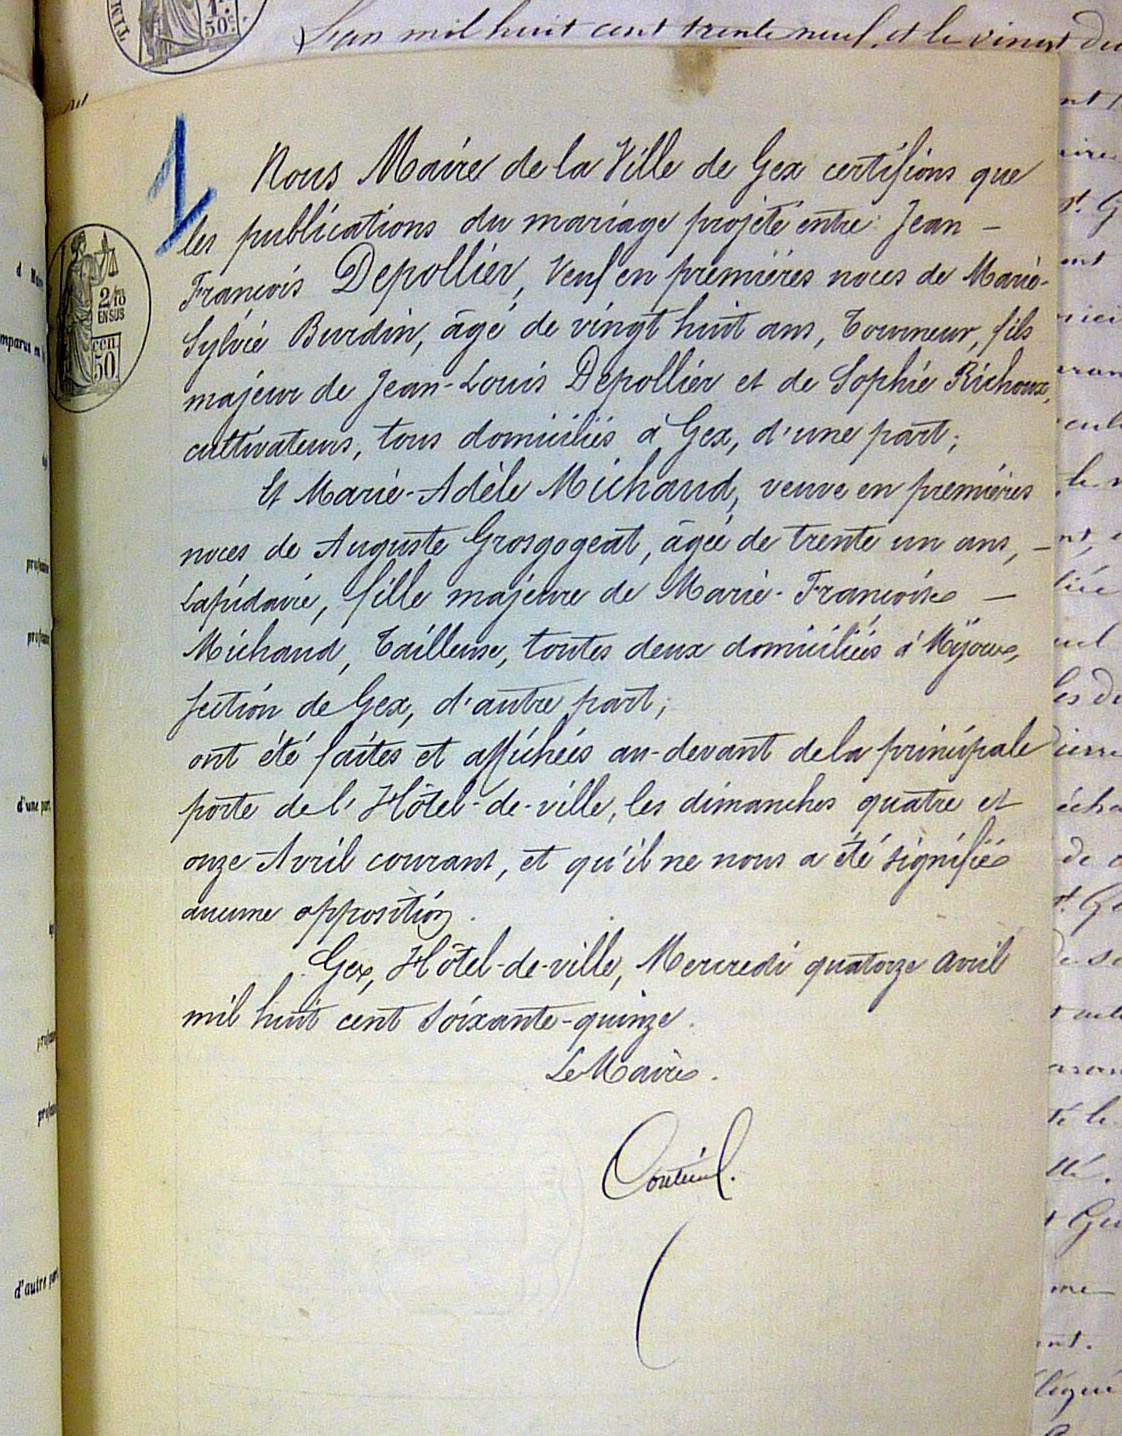 L'an mil huit cent trente neuf, et le vingt du
1
Nous Maire de la Ville de Gex certifions que
les publications du mariage projeté entre Jean -
François Depollier, Veuf en premières noces de Marie-
Sylvie Burdin, âgé de vingt huit ans, Tourneur, fils
majeur de Jean-Louis Depollier et de Sophie Richoux,
cultivateurs, tous domiciliés à Gex, d'une part;
Et Marie-Adèle Michaud, veuve en premières
noces de Auguste Grosgogeat, âgée de trente un ans, -
Lapidaire, fille majeure de Marie-Françoise -
Michaud, Tailleuse, toutes deux domiciliées à Mijoux,
section de Gex, d'autre part;
ont été faites et affichées au-devant de la principale
porte de l'Hôtel-de-ville, les dimanches quatre et
onze Avril courant, et qu'il ne nous a été signifié
aucune opposition.
Gex, Hôtel-de-ville, Mercredi quatorze avril
mil huit cent soixante-quinze.
Le Maire.
2/10
EN SUS
50
d'une part
d'autre part